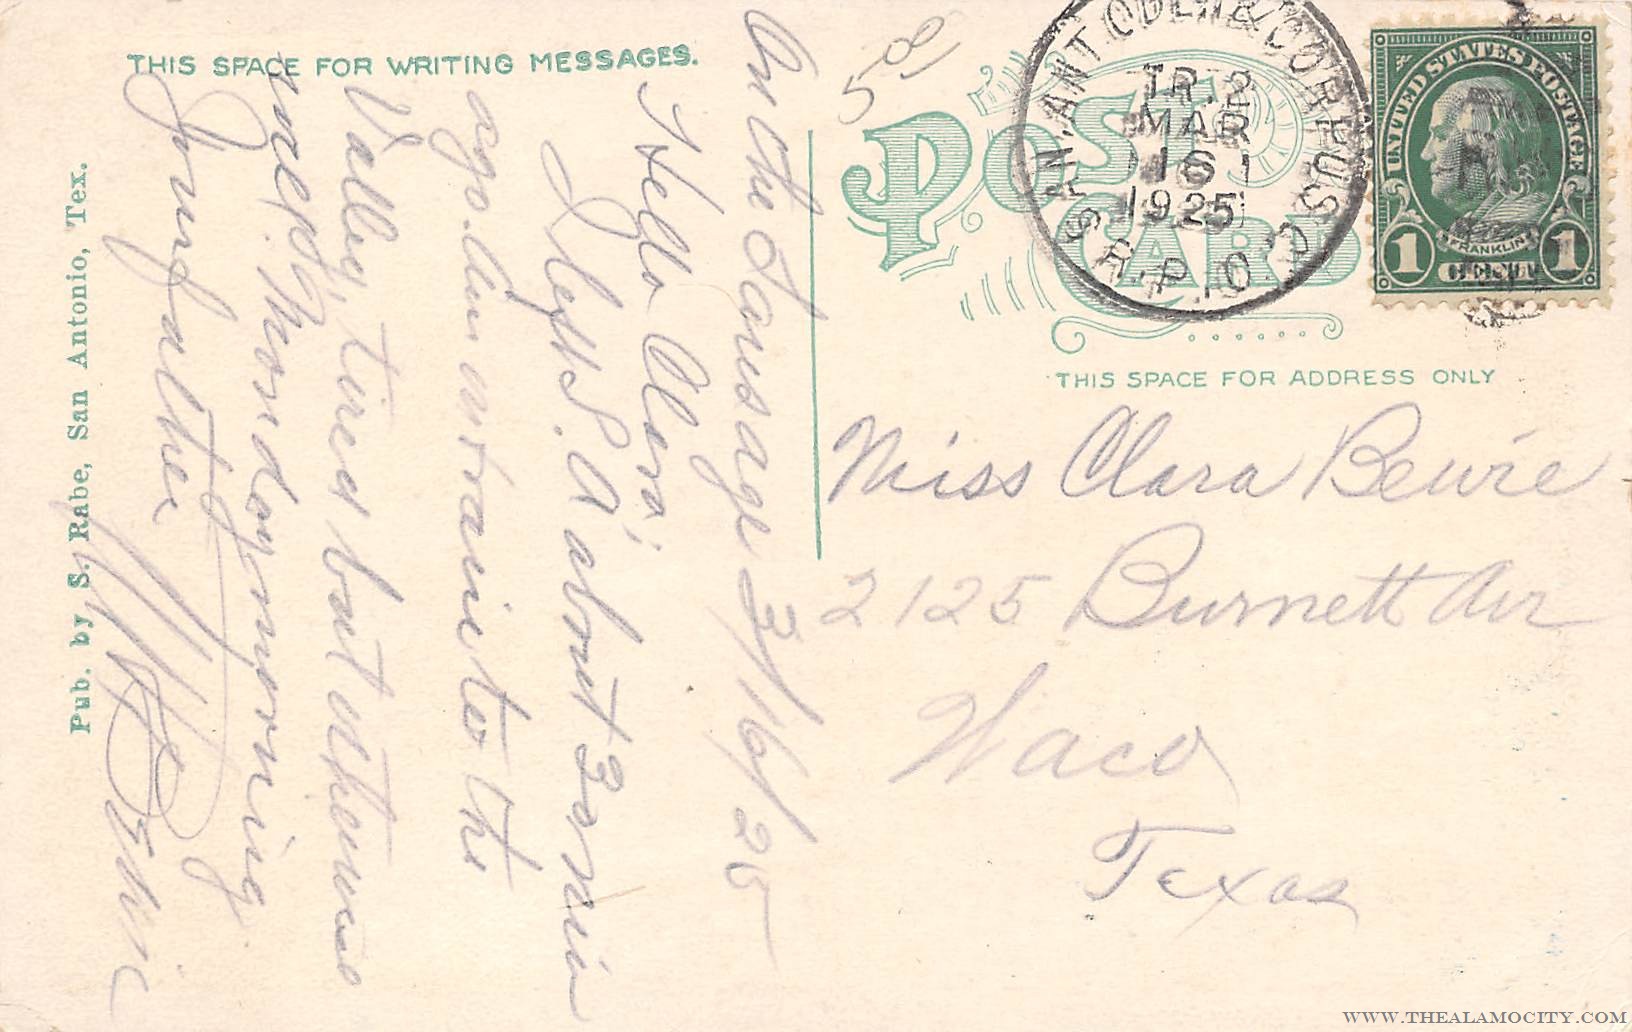 THIS SPACE FOR WRITING MESSAGES.
On the Sausage 3/16/25
Hello Clara;
I left S.A about 30 min
ago. Am on train to the
Valley, tired but otherwise
well. Monday morning
Your father
Bewie
Pub. by S. Rabe, San Antonio, Tex.
81
5
POST CARD
SAN. ANT. ODEM & CORPUS C
TR. 2
MAR
16
1925
R.P.O
UNITED STATES POSTAGE
FRANKLIN
1 CENT 1
THIS SPACE FOR ADDRESS ONLY
Miss Clara Bewie
2125 Burnett Av
Waco
Texas
WWW.THEALAMOCITY.COM